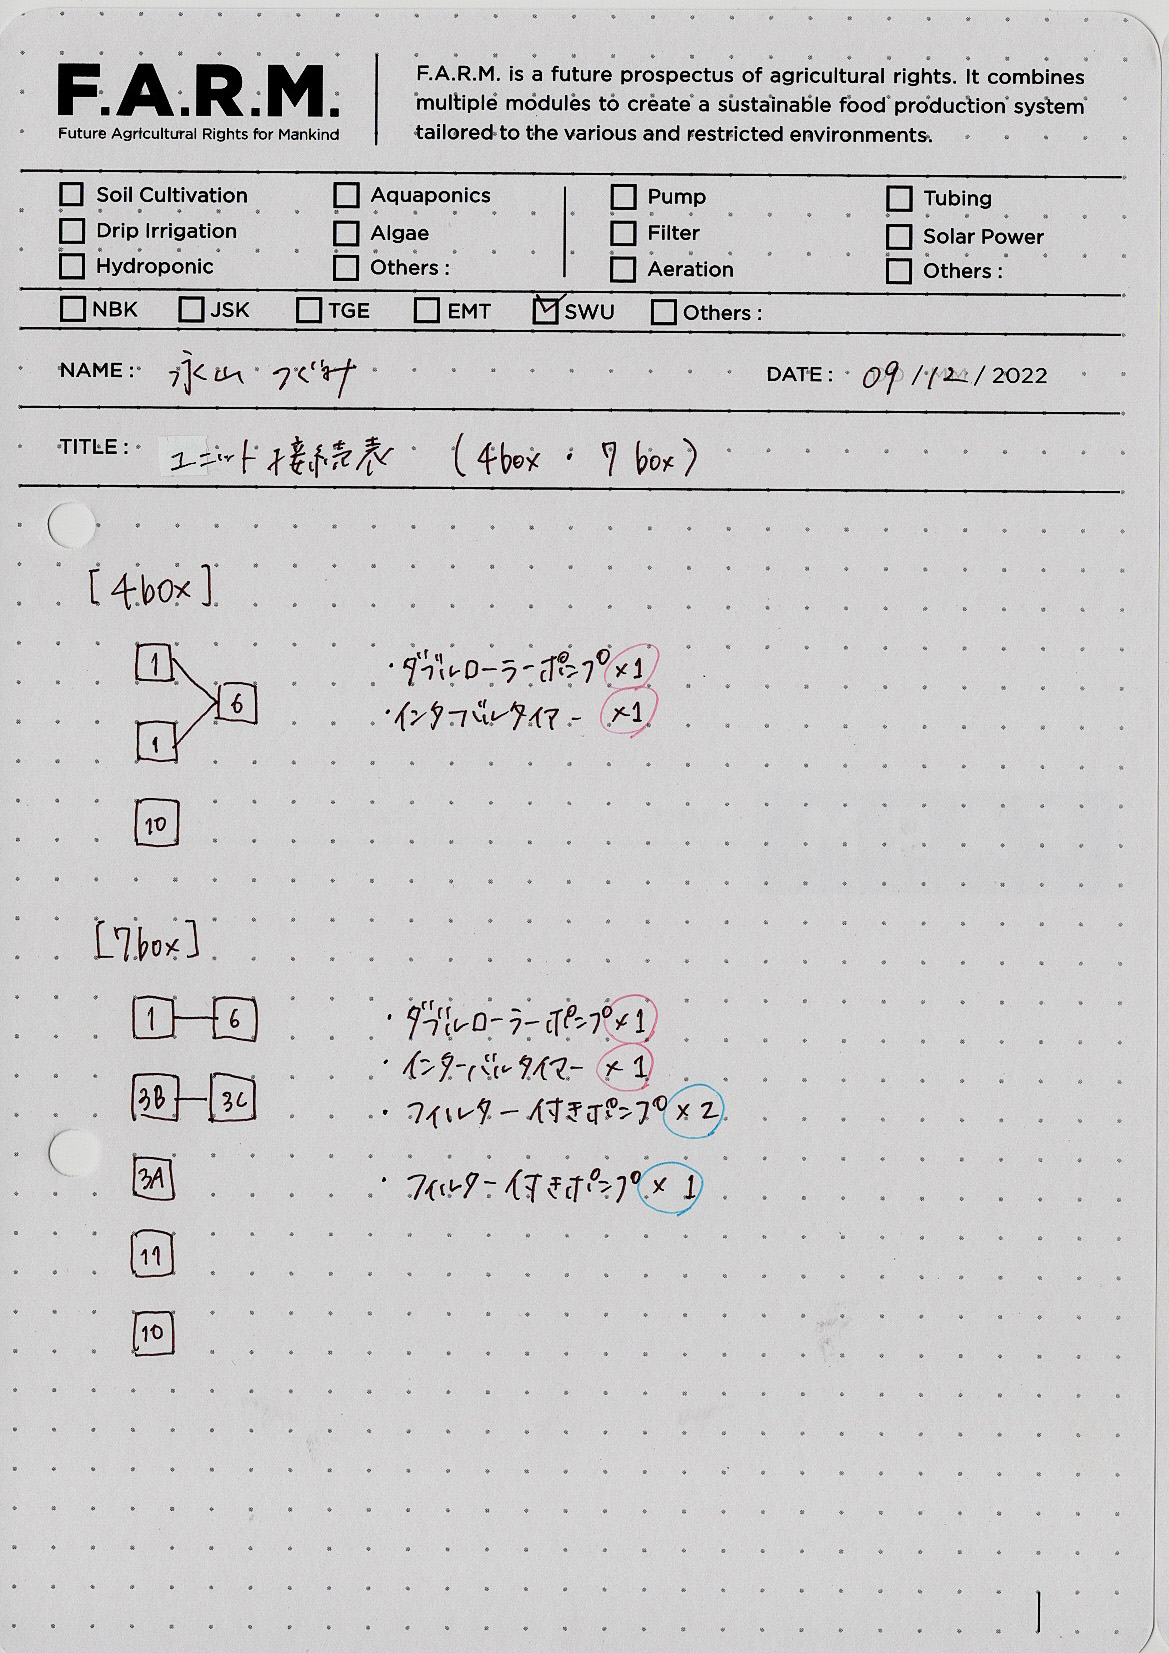 F.A.R.M.
Future Agricultural Rights for Mankind
F.A.R.M. is a future prospectus of agricultural rights. It combines
multiple modules to create a sustainable food production system
tailored to the various and restricted environments.
Soil Cultivation Aquaponics Pump Tubing
Drip Irrigation Algae Filter Solar Power
Hydroponic Others : Aeration Others :
NBK JSK TGE EMT SWU Others :
NAME : 永山 つぐみ DATE : 09 / 12 / 2022
TITLE : ユニット接続表 (4box・7box)
[4box]
1
・ダブルローラーポンプ ×1
6
・インターバルタイマー ×1
1
10
[7box]
1 6 ・ダブルローラーポンプ ×1
・インターバルタイマー ×1
3B 3C ・フィルター付きポンプ ×2
3A ・フィルター付きポンプ ×1
11
10
1